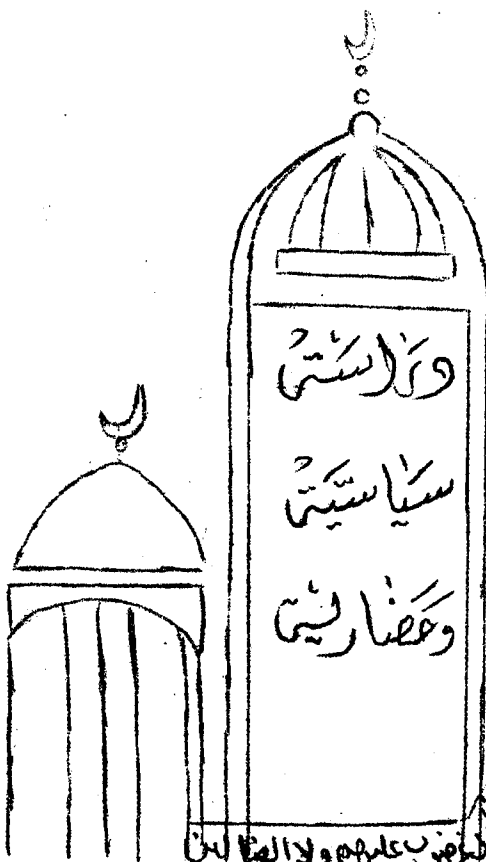 دِرَاسَةٌ
سِيَاسِيَّةٌ
وَحَضَارِيَّةٌ
عليهم ولا الضالين